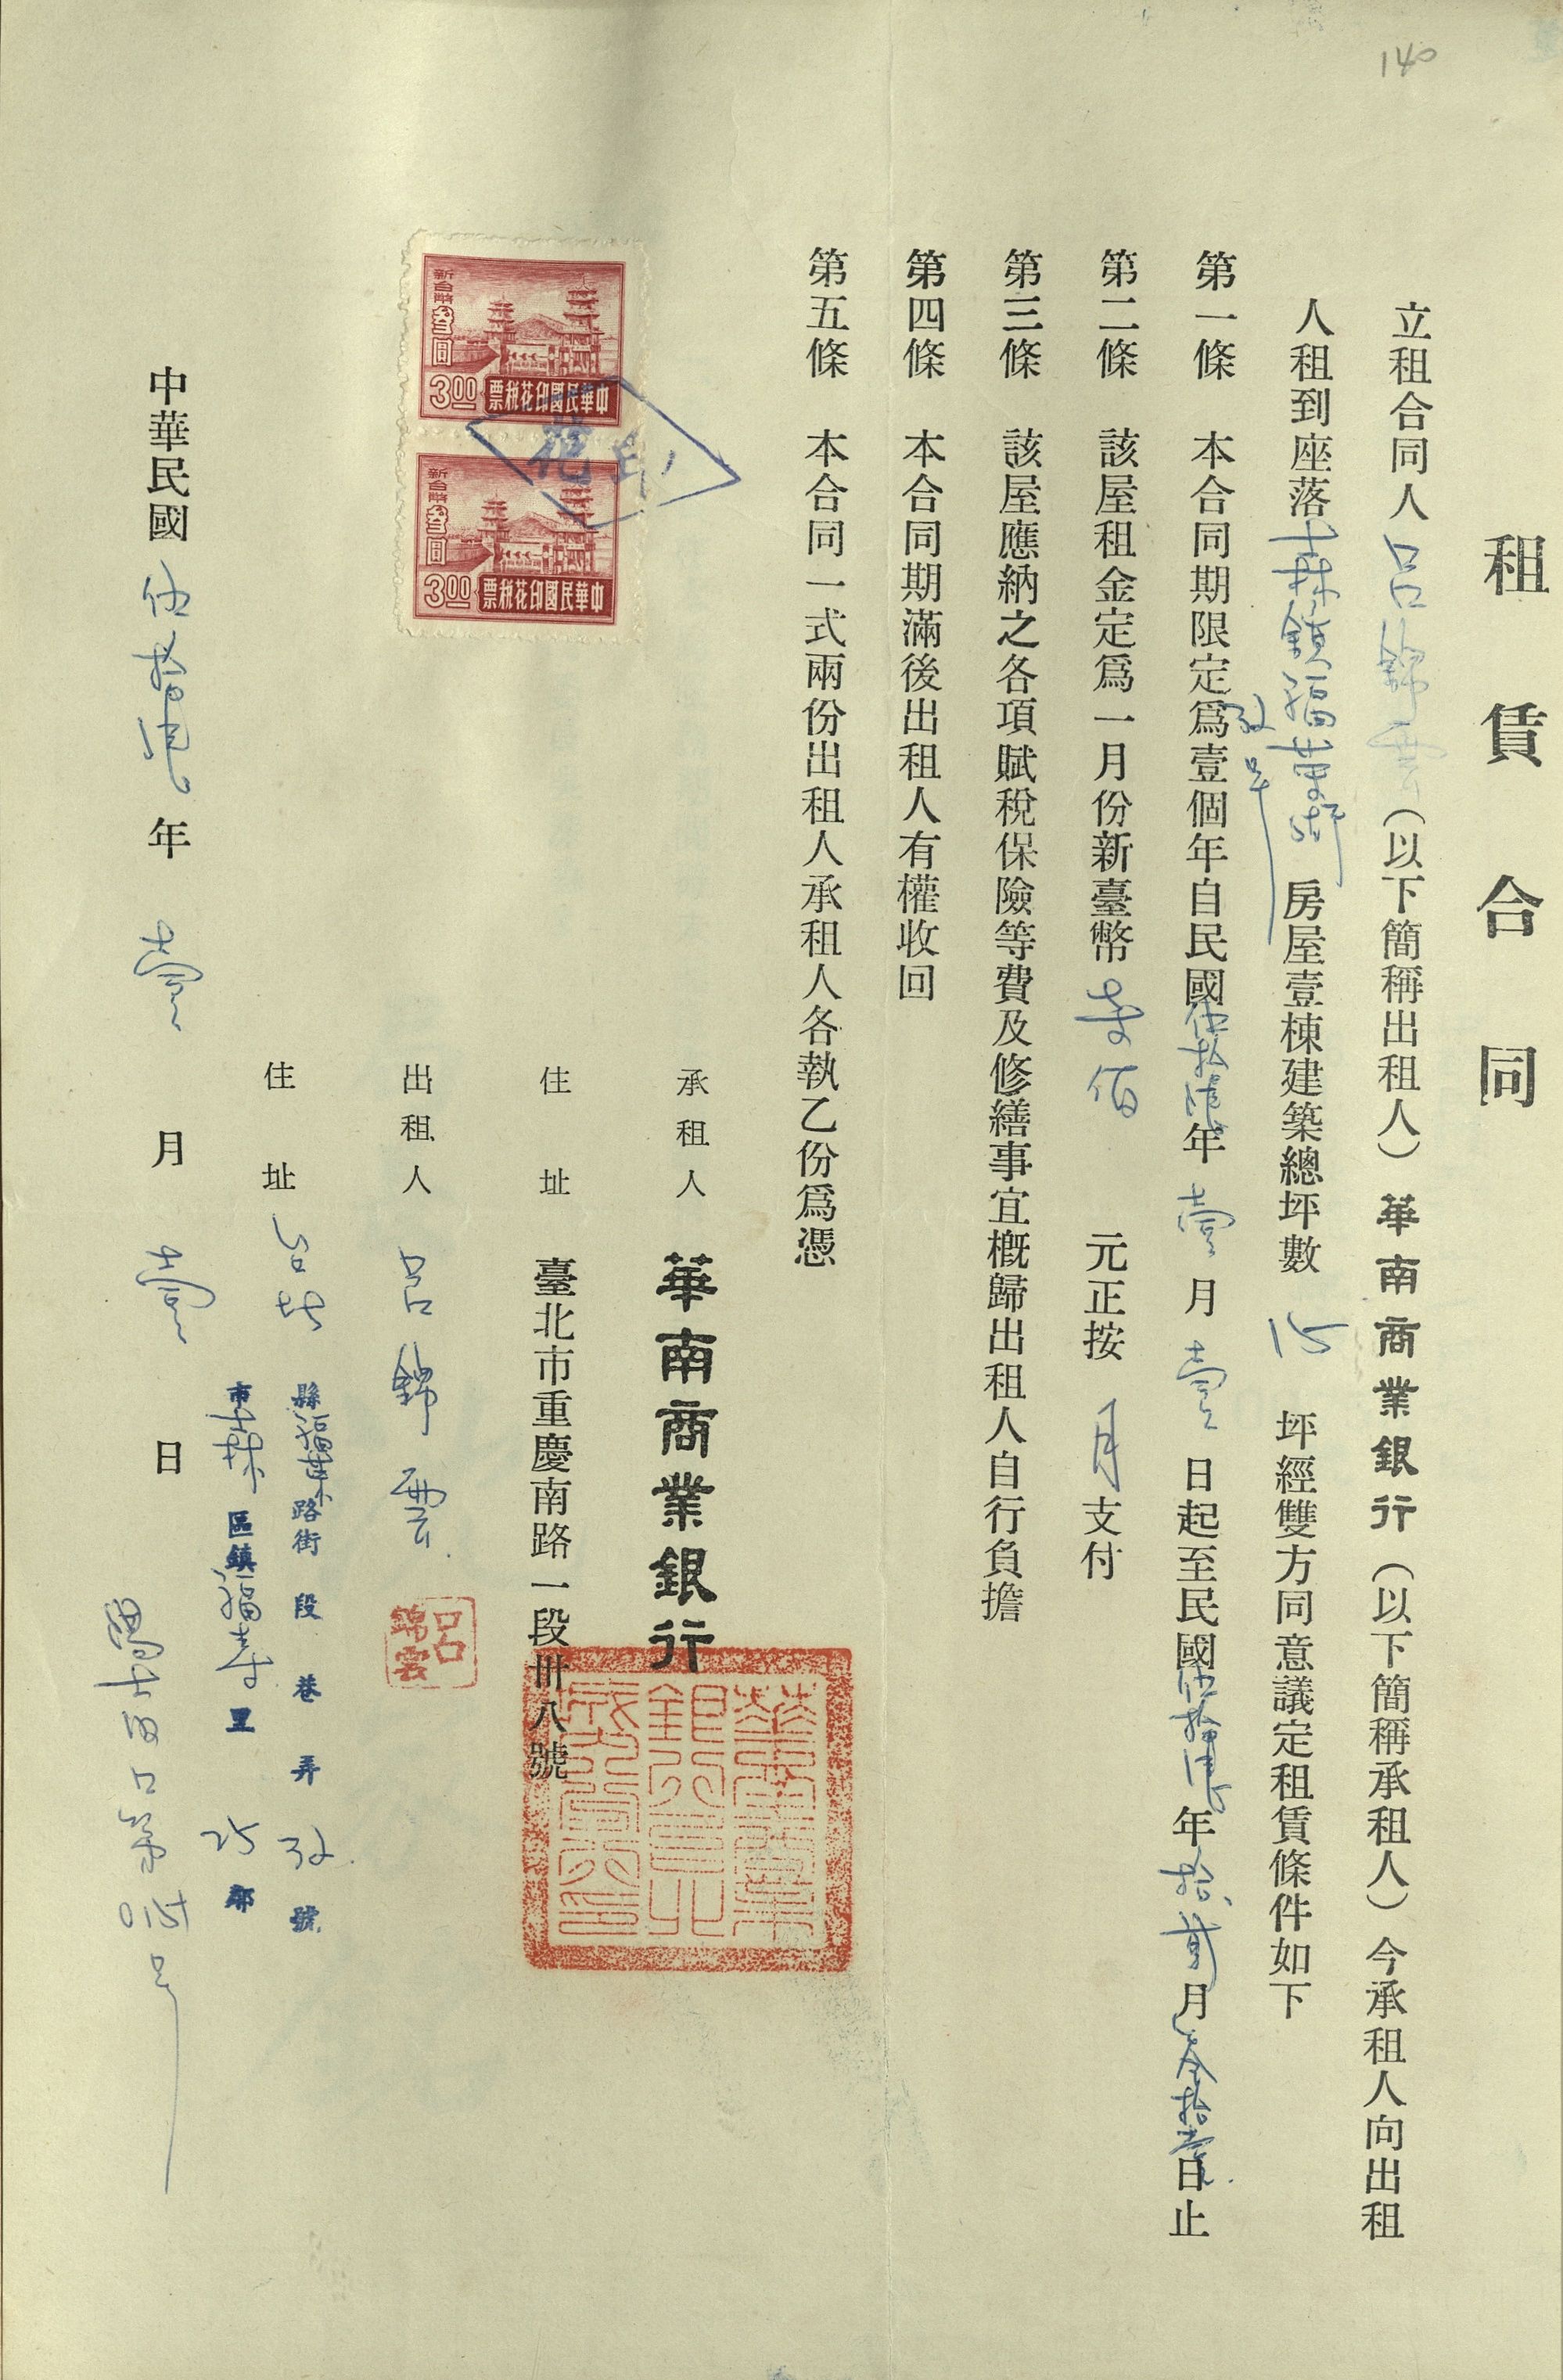 140
租賃合同
立租合同人呂錦雲(以下簡稱出租人)華南商業銀行(以下簡稱承租人)今承租人向出租
人租到座落士林鎮福華街 號房屋壹棟建築總坪數15坪經雙方同意議定租賃條件如下
第一條 本合同期限定爲壹個年自民國伍拾 年壹月壹日起至民國伍拾 年拾貳月叁拾壹日止
第二條 該屋租金定爲一月份新臺幣 佰元正按月支付
第三條 該屋應納之各項賦稅保險等費及修繕事宜概歸出租人自行負擔
第四條 本合同期滿後出租人有權收回
第五條 本合同一式兩份出租人承租人各執乙份爲憑
新台幣叁圓
3.00
中華民國印花稅票
新台幣叁圓
3.00
中華民國印花稅票
印花
承租人 華南商業銀行
住址 臺北市重慶南路一段卅八號
出租人 呂錦雲
呂錦雲
住址 台北縣市士林區鎮福壽里25鄰
路街 段 巷 弄 號
中華民國伍拾 年壹月壹日